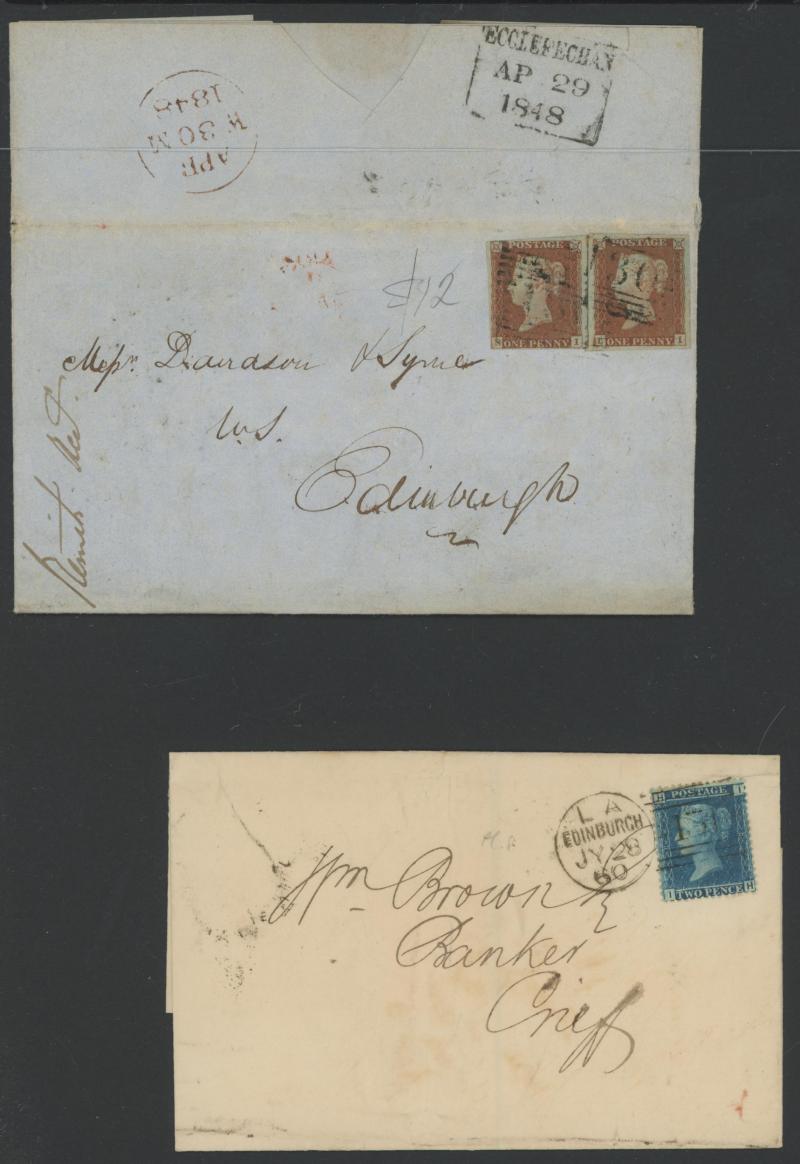 ECCLEFECHAN
AP 29
1848
APR
W 30 M
1848
$12
POSTAGE
S I
ONE PENNY
POSTAGE
I
ONE PENNY
Messrs Davidson & Syme
W.S.
Edinburgh
L A
EDINBURGH
JY 28
60
H I
POSTAGE
I H
TWO PENCE
Wm Brown
Banker
Crieff